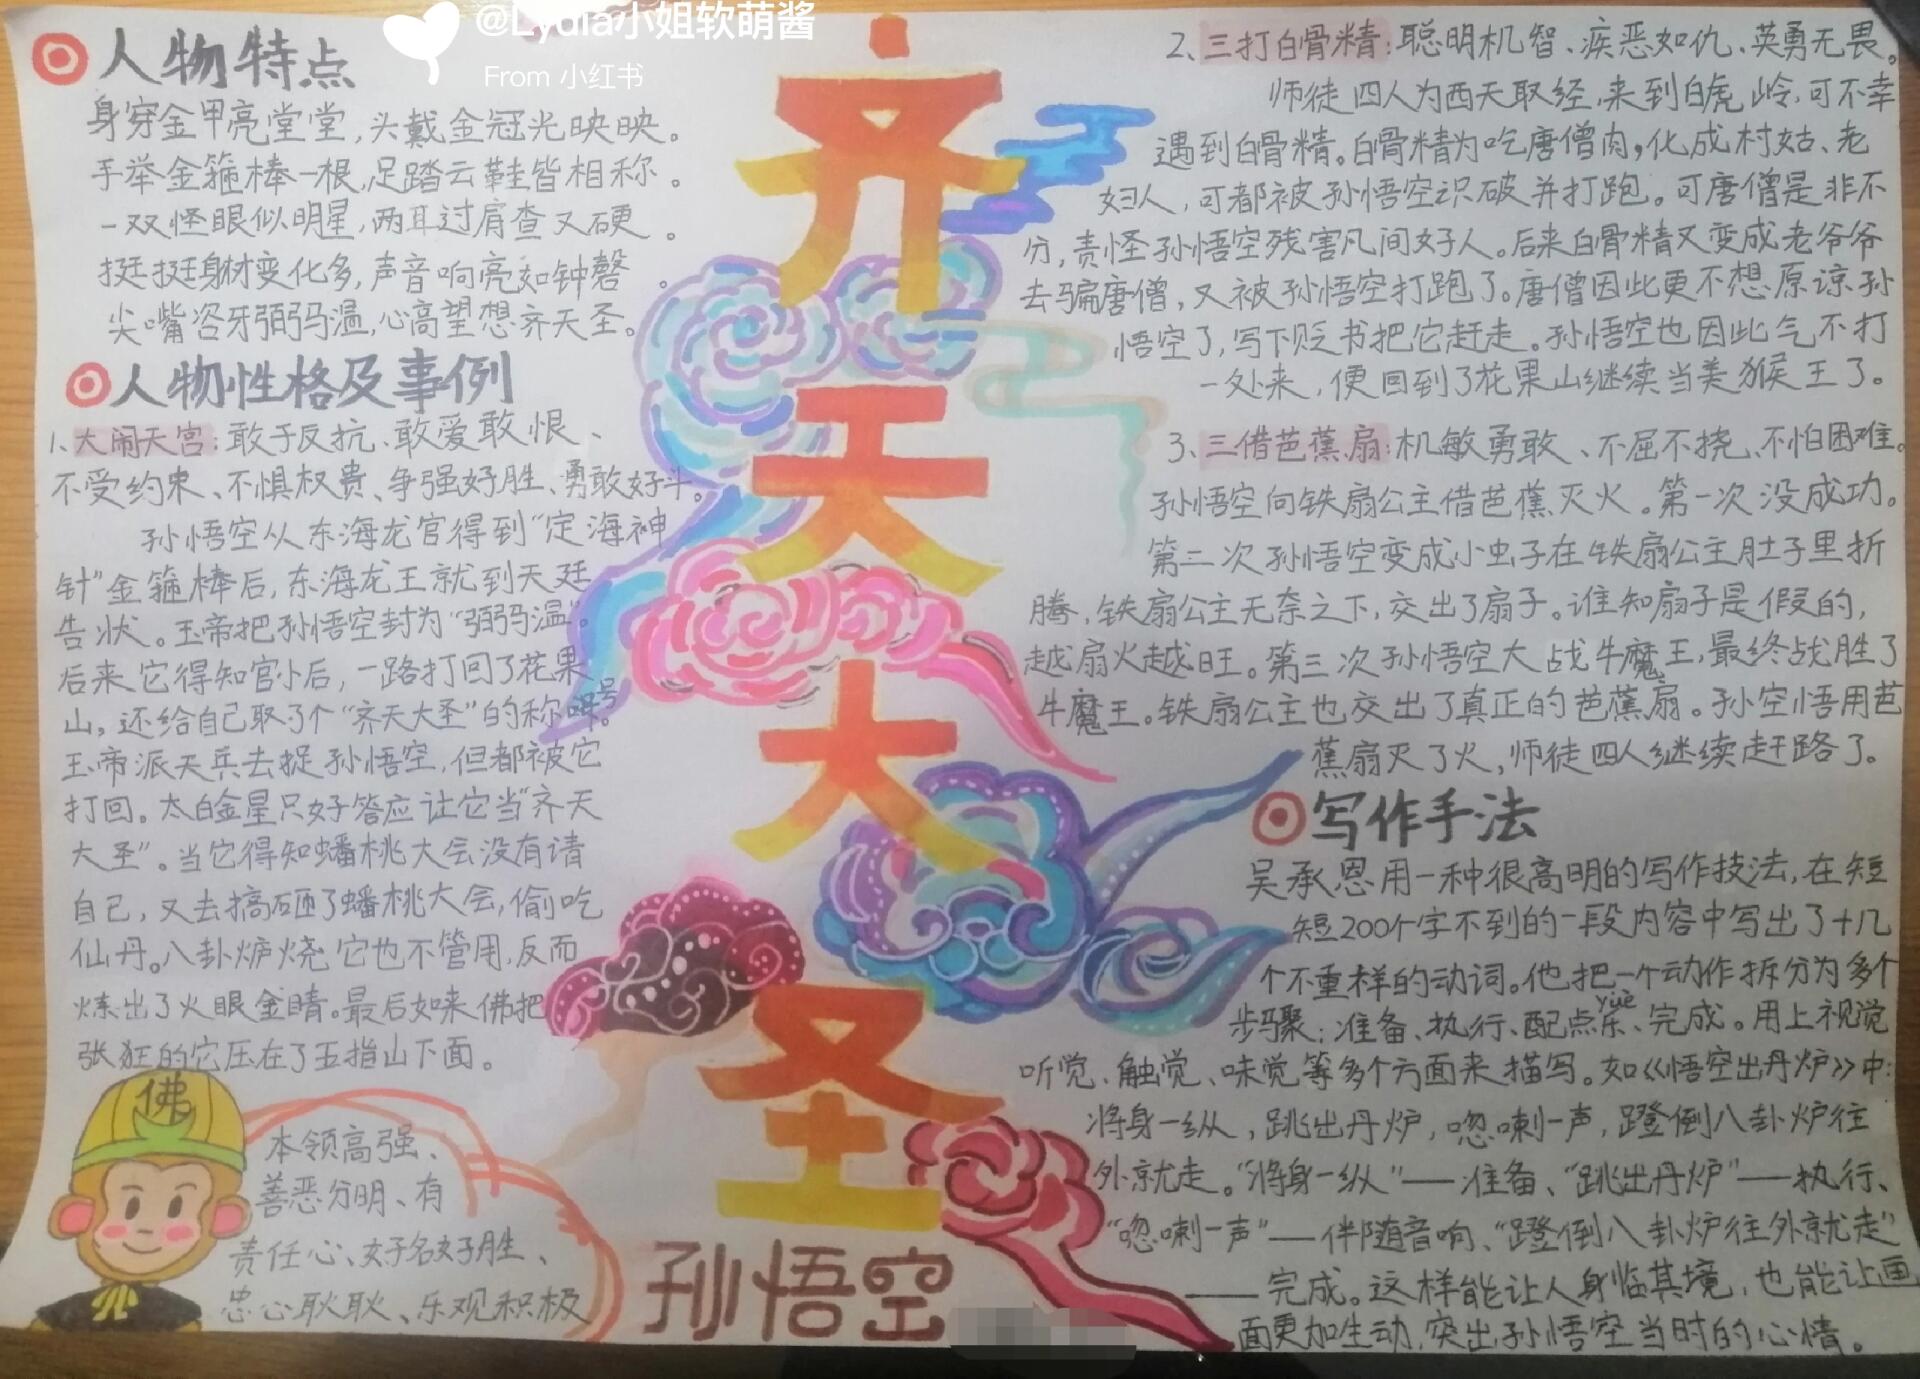 @Lydia小姐软萌酱
From 小红书
人物特点
身穿金甲亮堂堂,头戴金冠光映映。
手举金箍棒一根,足踏云鞋皆相称。
一双怪眼似明星,两耳过肩查又硬。
挺挺身材变化多,声音响亮如钟磬。
尖嘴咨牙弼马温,心高望想齐天圣。
人物性格及事例
1、大闹天宫:敢于反抗、敢爱敢恨、
不受约束、不惧权贵、争强好胜、勇敢好斗。
孙悟空从东海龙宫得到“定海神
针”金箍棒后,东海龙王就到天廷
告状。玉帝把孙悟空封为“弼马温”。
后来它得知官小后,一路打回了花果
山,还给自己取了个“齐天大圣”的称号。
玉帝派天兵去捉孙悟空,但都被它
打回。太白金星只好答应让它当“齐天
大圣”。当它得知蟠桃大会没有请
自己,又去搞砸了蟠桃大会,偷吃
仙丹。八卦炉烧它也不管用,反而
炼出了火眼金睛。最后如来佛把
张狂的它压在了五指山下面。
佛
本领高强、
善恶分明、有
责任心、好名好胜、
忠心耿耿、乐观积极
齐
天
大
圣
孙悟空
2、三打白骨精:聪明机智、疾恶如仇、英勇无畏。
师徒四人为西天取经,来到白虎岭,可不幸
遇到白骨精。白骨精为吃唐僧肉,化成村姑、老
妇人,可都被孙悟空识破并打跑。可唐僧是非不
分,责怪孙悟空残害凡间好人。后来白骨精又变成老爷爷
去骗唐僧,又被孙悟空打跑了。唐僧因此更不想原谅孙
悟空了,写下贬书把它赶走。孙悟空也因此气不打
一处来,便回到了花果山继续当美猴王了。
3、三借芭蕉扇:机敏勇敢、不屈不挠、不怕困难。
孙悟空向铁扇公主借芭蕉灭火。第一次没成功。
第二次孙悟空变成小虫子在铁扇公主肚子里折
腾,铁扇公主无奈之下,交出了扇子。谁知扇子是假的,
越扇火越旺。第三次孙悟空大战牛魔王,最终战胜了
牛魔王。铁扇公主也交出了真正的芭蕉扇。孙空悟用芭
蕉扇灭了火,师徒四人继续赶路了。
写作手法
吴承恩用一种很高明的写作技法,在短
短200个字不到的一段内容中写出了十几
个不重样的动词。他把一个动作拆分为多个
步骤:准备、执行、配点乐yuè、完成。用上视觉
听觉、触觉、味觉等多个方面来描写。如《悟空出丹炉》中:
将身一纵,跳出丹炉,唿喇一声,蹬倒八卦炉往
外就走。“将身一纵”——准备、“跳出丹炉”——执行、
“唿喇一声”——伴随音响、“蹬倒八卦炉往外就走”
——完成。这样能让人身临其境,也能让画
面更加生动,突出孙悟空当时的心情。